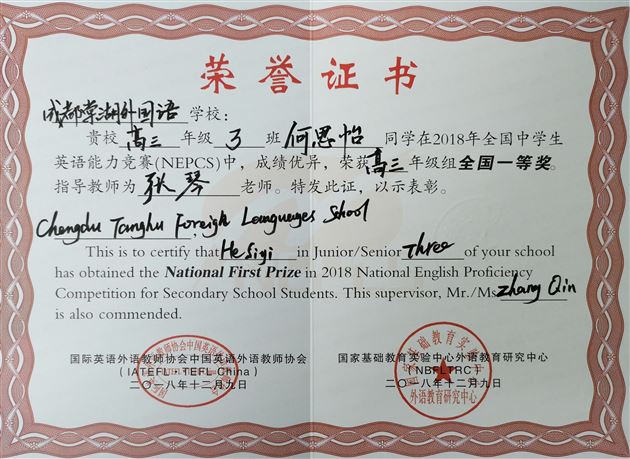 荣誉证书
成都棠湖外国语学校:
贵校高三年级3班何思怡同学在2018年全国中学生
英语能力竞赛(NEPCS)中,成绩优异,荣获高三年级组全国一等奖。
指导教师为张琴老师。特发此证,以示表彰。
Chengdu Tanghu Foreign Languages School
This is to certify that He Siyi in Junior/Senior Three of your school
has obtained the National First Prize in 2018 National English Proficiency
Competition for Secondary School Students. This supervisor, Mr./Ms. Zhang Qin
is also commended.
国际英语外语教师协会中国英语外语教师协会
(IATEFL-TEFL China)
二〇一八年十二月九日
国家基础教育实验中心外语教育研究中心
(NBFLTRC)
二〇一八年十二月九日
外语教育研究中心